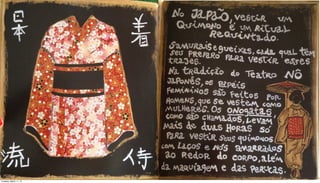 日本
着
流
侍
No JAPÃO, VESTIR UM
QUIMONO É UM RITUAL
REQUINTADO.
SAMURAIS e gueixas, cada qual têm
SEU PREPARO PARA VESTIR ESSES
TRAJES.
NA TRADIÇÃO DO TEATRO NÔ
JAPONÊS, OS PAPEIS
FEMININOS SÃO FEITOS POR
HOMENS, QUE SE VESTEM COMO
MULHERES. OS ONOGATAS
COMO SÃO CHAMADOS, LEVAM
MAIS DE DUAS HORAS SÓ
PARA VESTIR SEUS QUIMONOS
COM LAÇOS E NÓS AMARRADOS
AO REDOR DO CORPO, ALÉM
DA MAQUIAGEM E DAS PERUCAS.